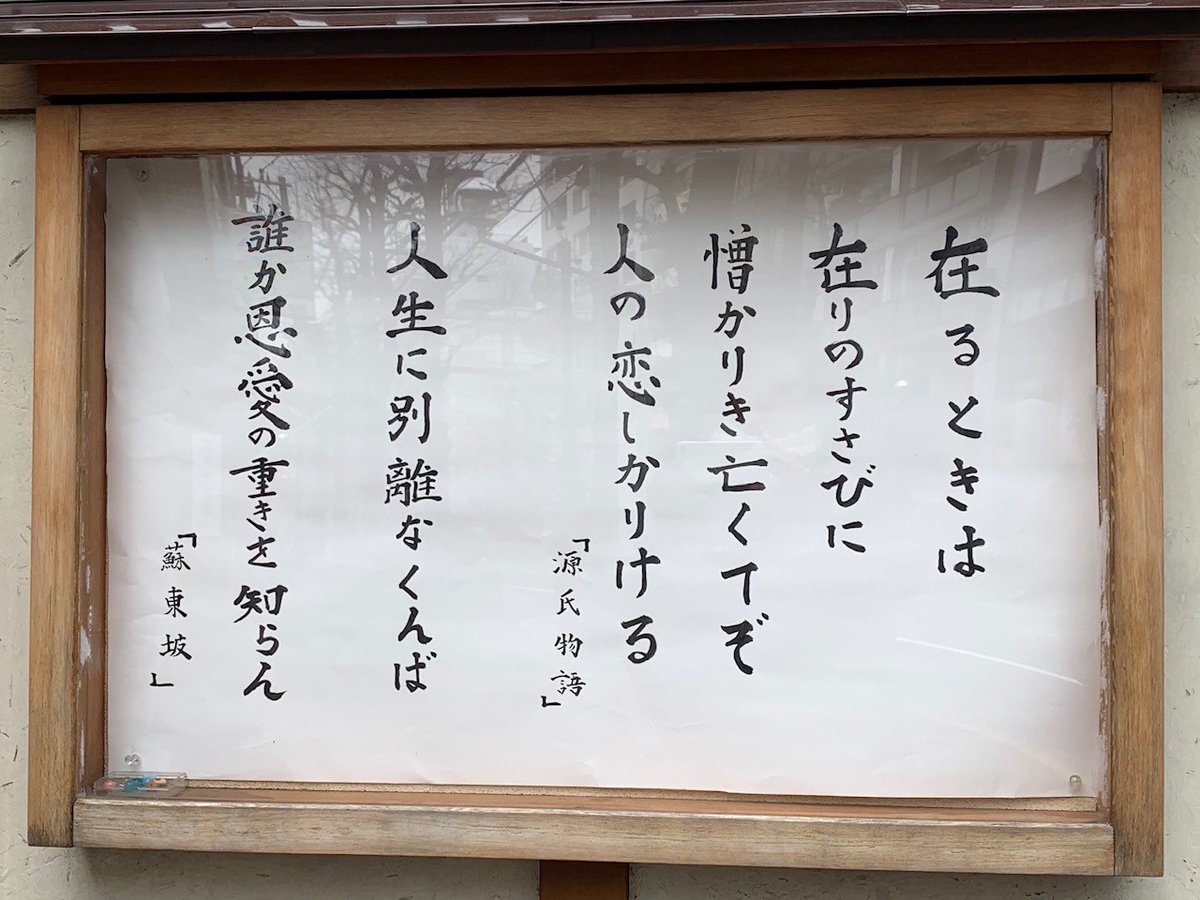 在るときは
在りのすさびに
憎かりき亡くてぞ
人の恋しかりける
「源氏物語」
人生に別離なくんば
誰か恩愛の重きを知らん
「蘇東坡」